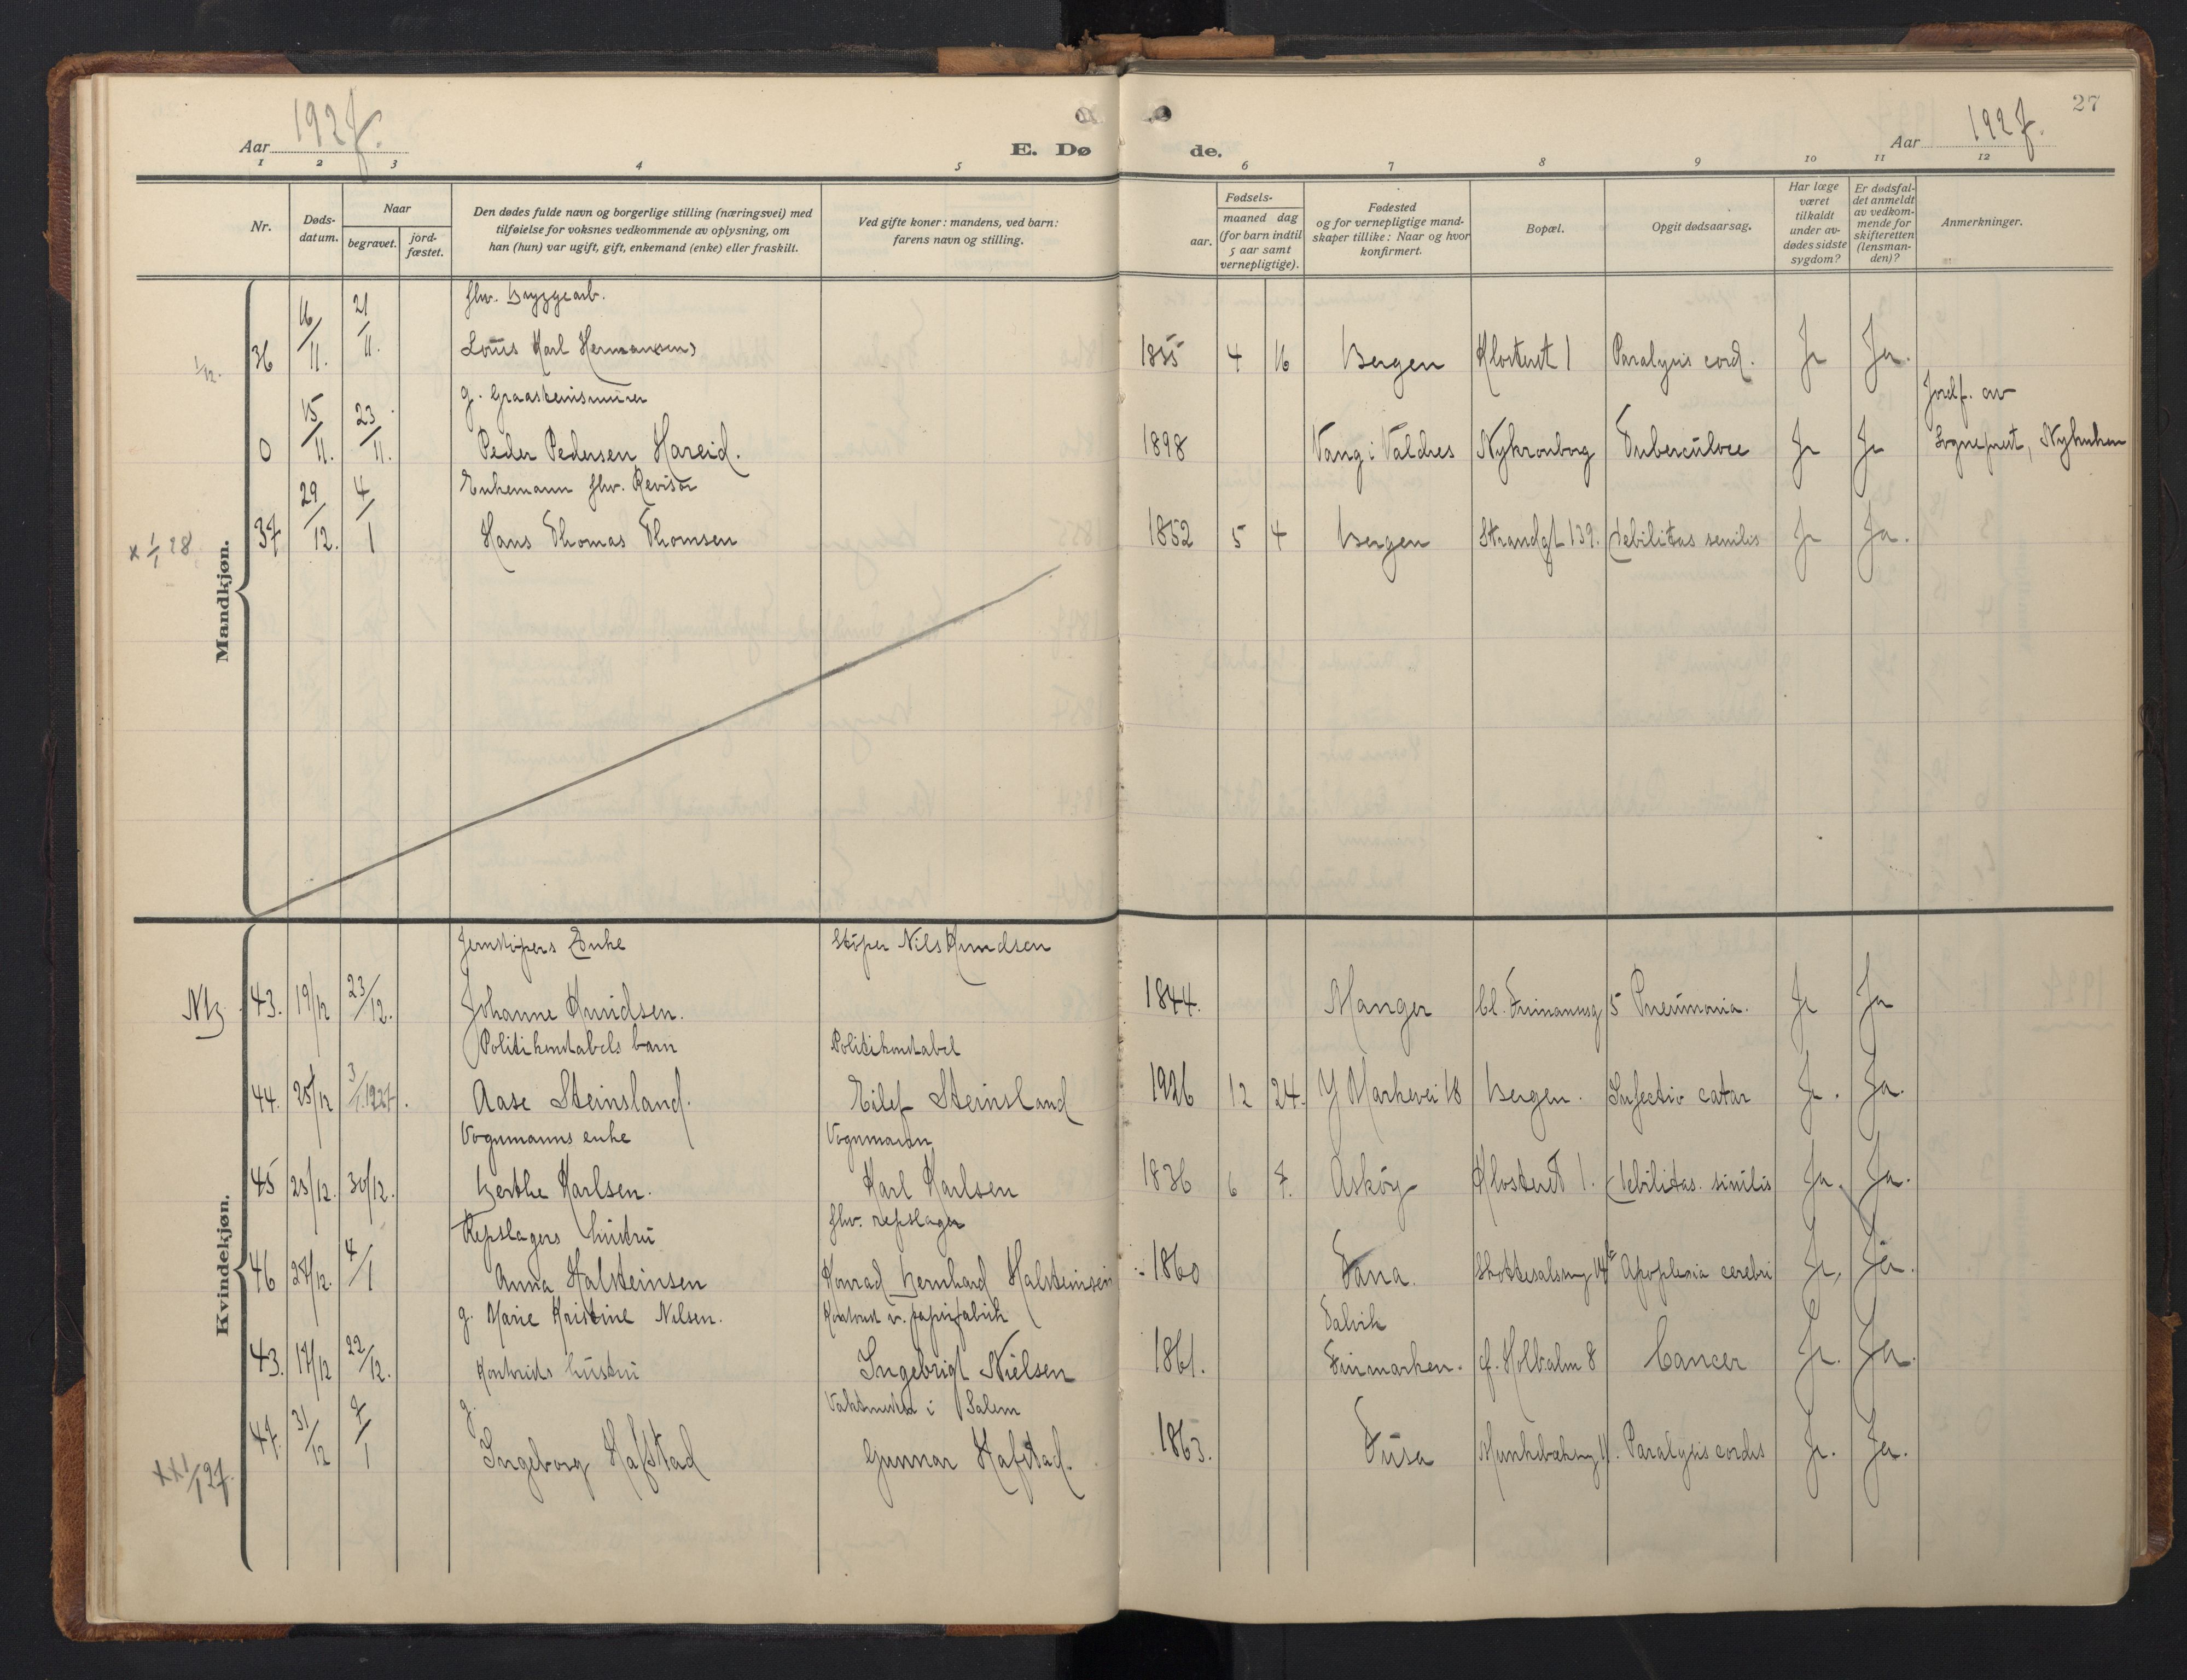 27
Aar 1927.
E. Døde.
Aar 1927.
1 2 3 4 5 6 7 8 9 10 11 12
Nr.
Døds-
datum.
Naar
begravet.
jord-
fæstet.
Den dødes fulde navn og borgerlige stilling (næringsvei) med
tilføielse for voksnes vedkommende av oplysning, om
han (hun) var ugift, gift, enkemand (enke) eller fraskilt.
Ved gifte koner: mandens, ved barn:
farens navn og stilling.
Fødsels-
aar.
maaned dag
(for barn indtil
5 aar samt
vernepligtige).
Fødested
og for vernepligtige mand-
skaper tillike: Naar og hvor
konfirmert.
Bopæl.
Opgit dødsaarsag.
Har læge
været
tilkaldt
under av-
dødes sidste
sygdom?
Er dødsfal-
det anmeldt
av vedkom-
mende for
skifteretten
(lensman-
den)?
Anmerkninger.
Mandkjøn.
fhv. Bryggearb.
1/12. 36 16/11. 21/11. Louis Karl Hermansen 1855 4 16 Bergen Klosteret 1 Paralysis cord. Ja Ja.
g. Graasteinsmurer
Jordf. av
0 15/11. 23/11. Peder Pedersen Hareid. 1898 Vang i Valdres Nykronborg Tuberculose Ja Ja Sogneprest, Nykirken
Enkemann fhv. Revisor
x 1/1 28 37 29/12. 4/1 Hans Thomas Thomsen 1852 5 4 Bergen Strandgt 139. Debilitas senilis Ja Ja.
Kvindekjøn.
Jernstøpers Enke Støper Nils Knudsen
43. 19/12 23/12. Johanne Knudsen. 1844. Manger 5 Pneumonia. Ja Ja
Politikonstabels barn Politikonstabel
44. 25/12 3/1.1927. Aase Steinsland. Eilef Steinsland 1926 12 24. Y Markevei 18 Bergen. Infectio catar Ja. Ja.
Vognmanns enke Vognmann
45 25/12. 30/12. Berthe Karlsen. Karl Karlsen 1836 6 7. Askøy Klosteret 1. Debilitas. sinilis Ja. Ja.
Repslagers hustru fhv. repslager
46 27/12. 4/1 Anna Halsteinsen Konrad Bernhard Halsteinsen 1860 Fana. Apoplexia cerebri Ja, Ja.
g. Marie Kristine Nilsen. Kontorist v. papirfabrik Talvik
43. 17/12 22/12. Kontorists hustru Ingebrigt Nielsen 1861. Finmarken. 8 Cancer Ja. Ja.
g. Vaktmester i Salem
xx 1/1 27. 47. 31/12 7/1 Ingeborg Hafstad Gunnar Hafstad. 1863. Fusa Paralysis cordis Ja. Ja.